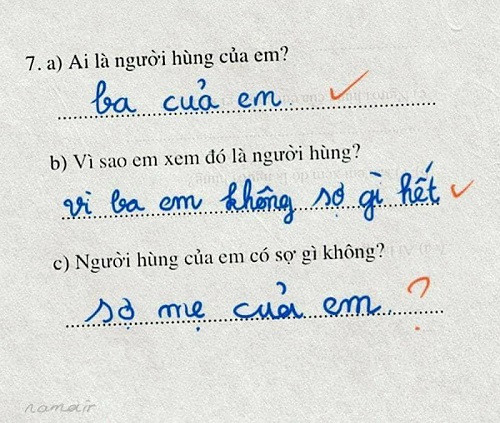 7. a) Ai là người hùng của em?
ba của em
b) Vì sao em xem đó là người hùng?
vì ba em không sợ gì hết
c) Người hùng của em có sợ gì không?
sợ mẹ của em. ?
namair